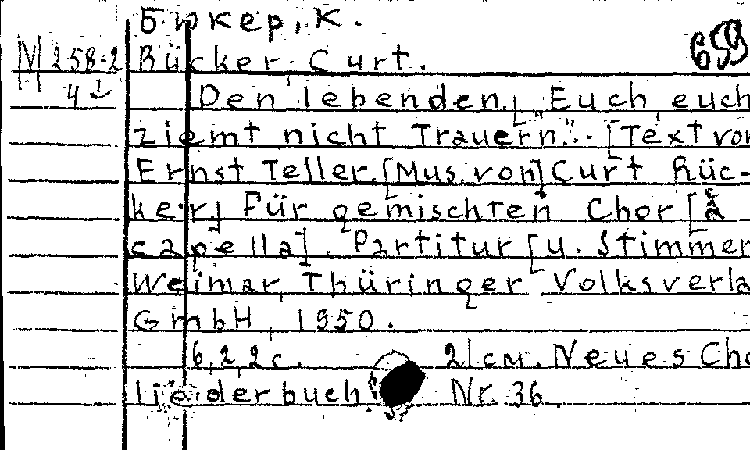 Бюкер, К.
M 258-2 Bücker, Curt. 659
42 Den lebenden. "Euch, euch
ziemt nicht Trauern". [Text von
Ernst Teller. [Mus. von] Curt Rüc-
ker] Für gemischten Chor [a
capella]. Partitur [u. Stimmen
Weimar, Thüringer Volksverla
GmbH, 1950.
6, 2, 2 c. 21 см. Neues Cho
liederbuch Nr. 36